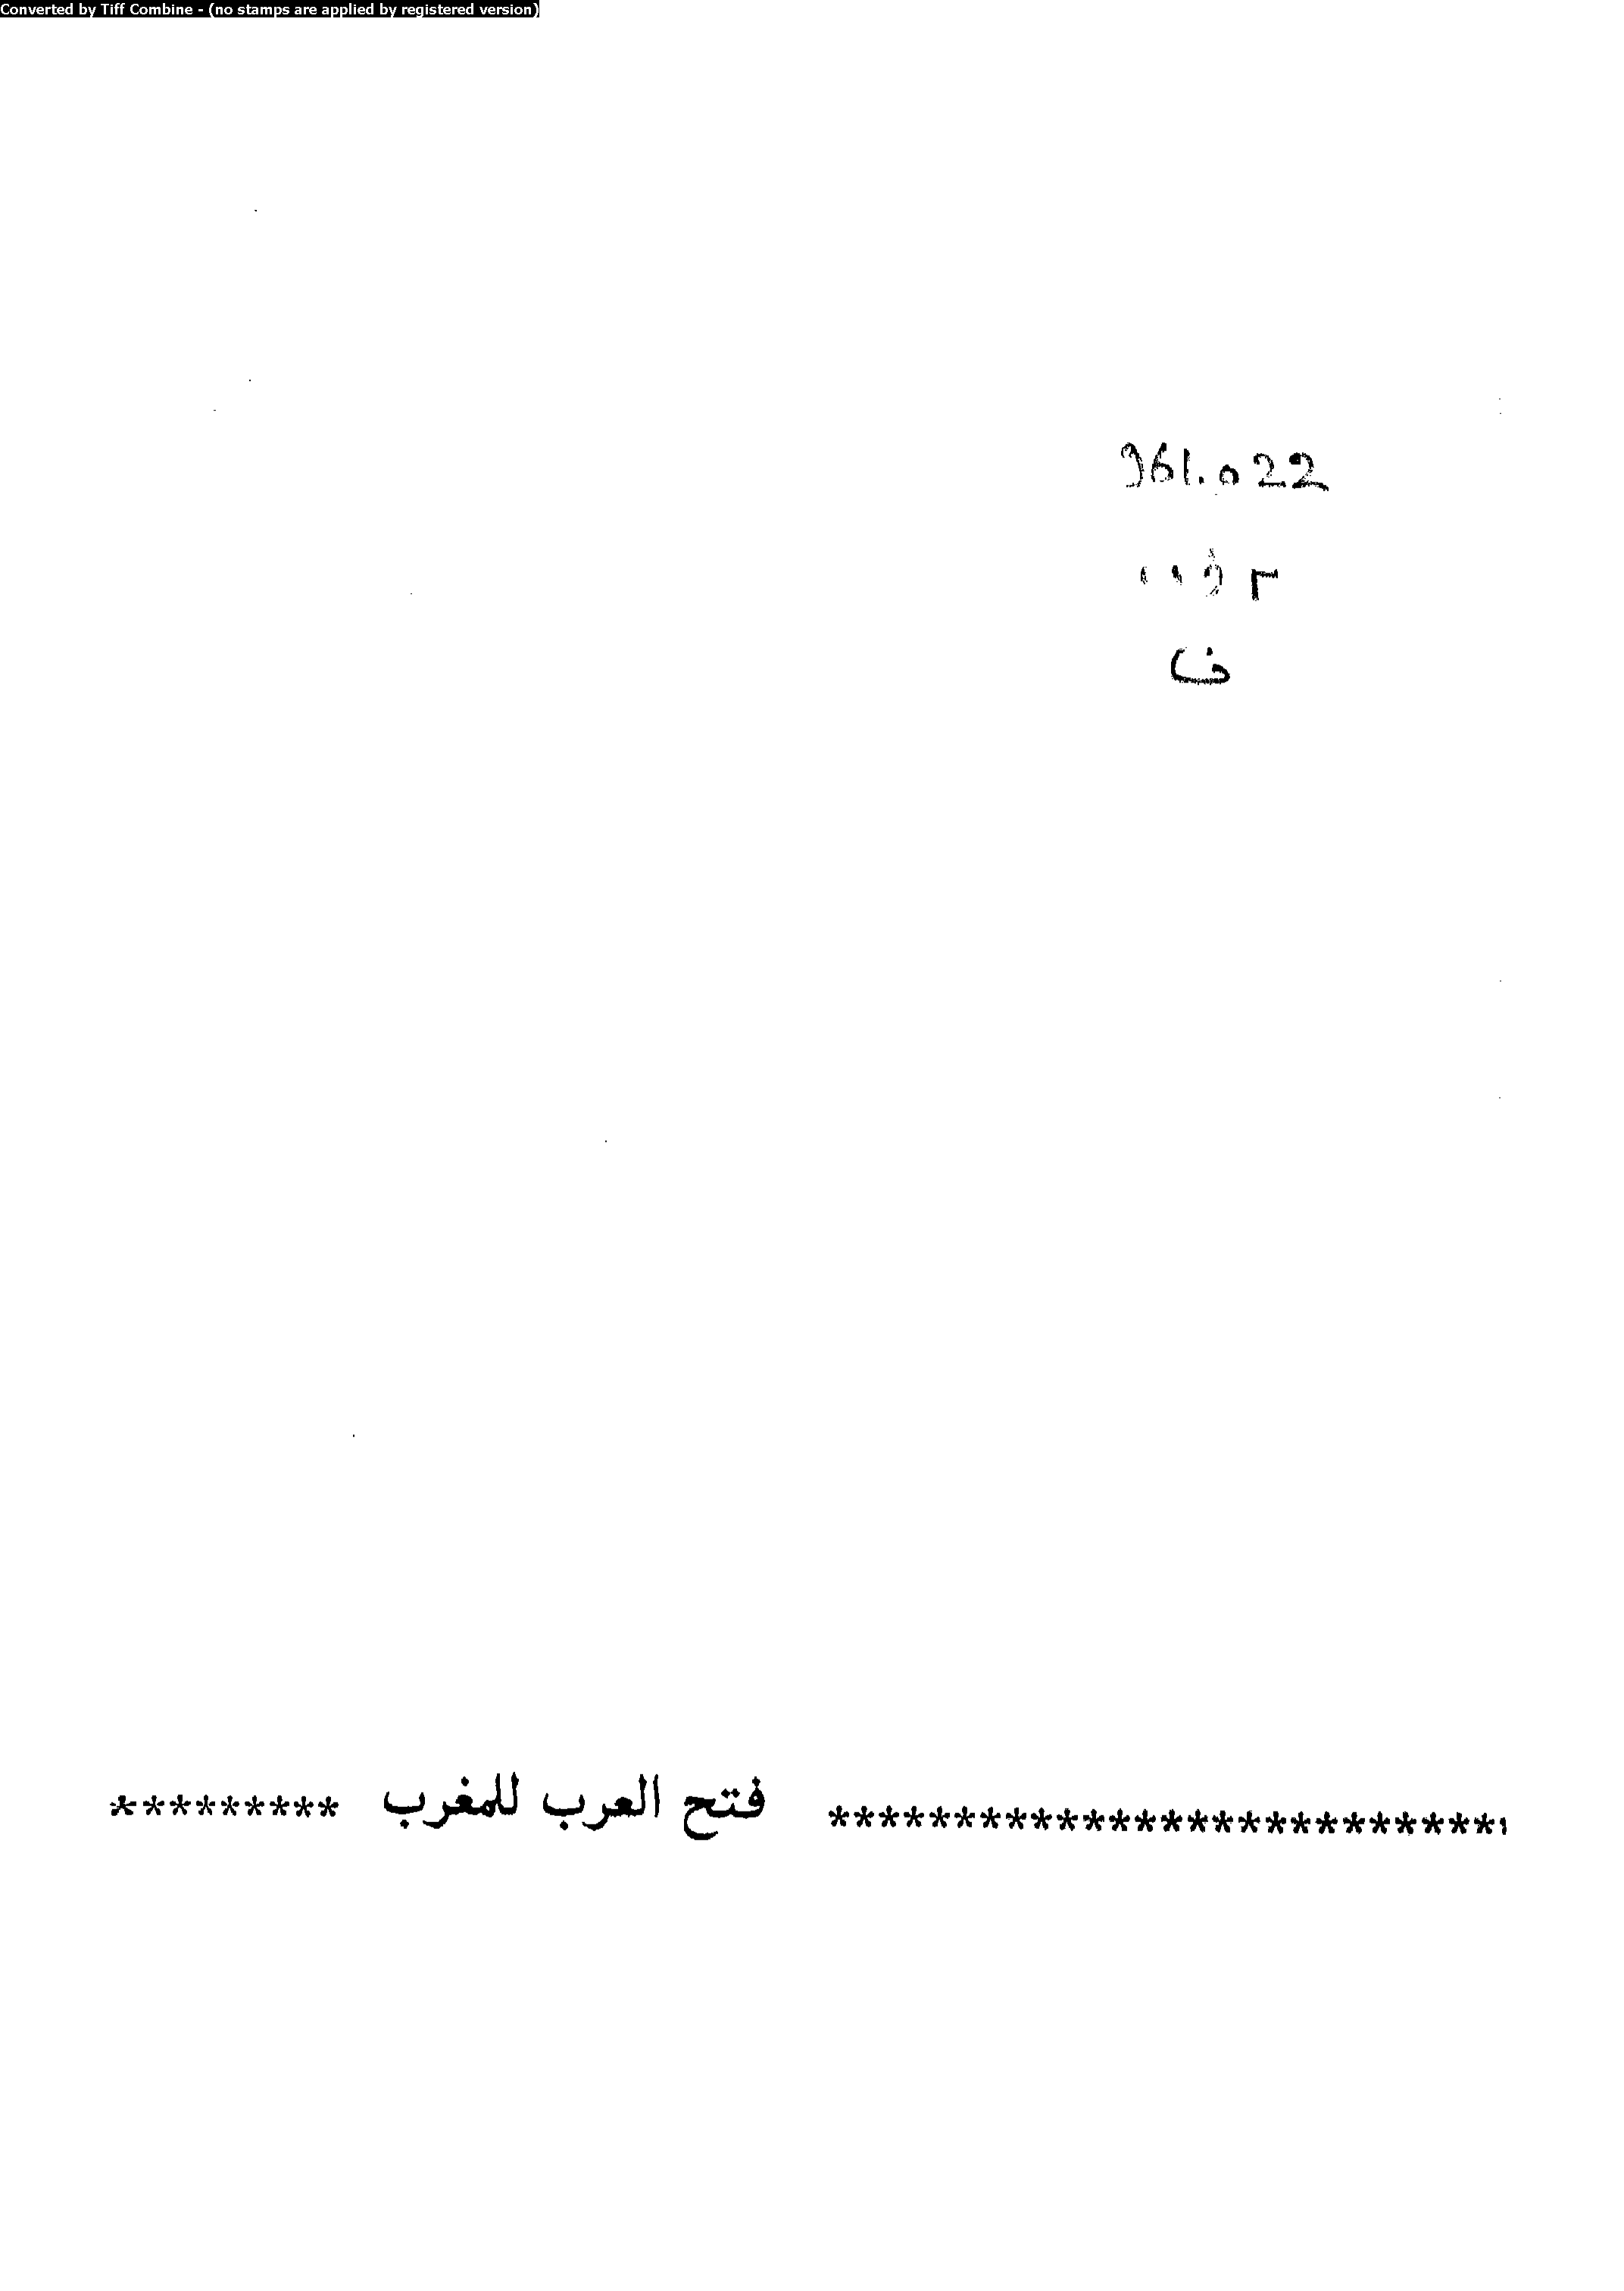 Converted by Tiff Combine - (no stamps are applied by registered version)
961.022
ف
************************** فتح العرب للمغرب *********